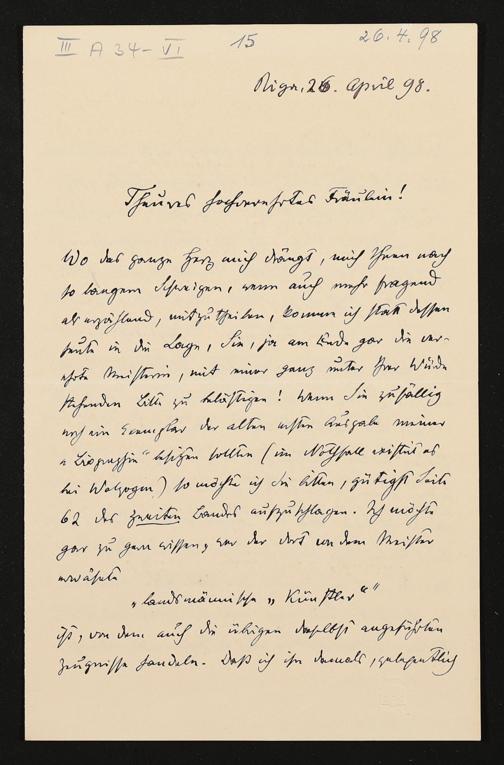 III A 34 - VI 15 26.4.98
Riga, 26. April 98.
Theures hochverehrtes Fräulein!
Wo das ganze Herz mich drängt, mich Ihnen nach
so langem Schweigen, wenn auch mehr fragend
als erzählend, mitzutheilen, komme ich statt dessen
heute in die Lage, Sie, ja am Ende gar die ver-
ehrte Meisterin, mit einer ganz unter Ihrer Würde
stehenden Bitte zu belästigen! Wenn Sie zufällig
noch ein Exemplar der alten ersten Ausgabe meiner
„Biographie“ besitzen sollten (im Nothfall existirt es
bei Wolzogen) so möchte ich Sie bitten, gütigst Seite
62 des zweiten Bandes aufzuschlagen. Ich möchte
gar zu gern wissen, wer der dort von dem Meister
erwähnte
„landsmännische „Künstler““
ist, von dem auch die übrigen daselbst angeführten
Zeugnisse handeln. Daß ich ihn damals, gelegentlich